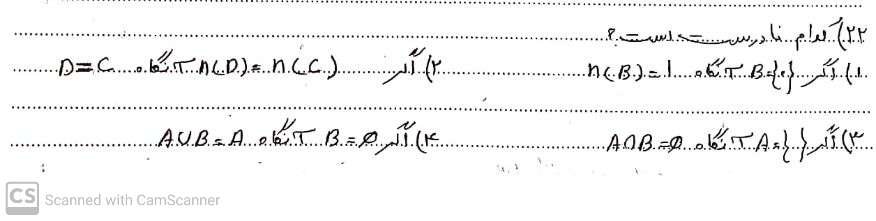 ۲۲) کدام نادرست است؟
۱) اگر B={۰} آنگاه n(B)=1 ۲) اگر n(D)=n(C) آنگاه D=C
۳) اگر A={ } آنگاه A∩B=∅ ۴) اگر B=∅ آنگاه A∪B=A
CS Scanned with CamScanner